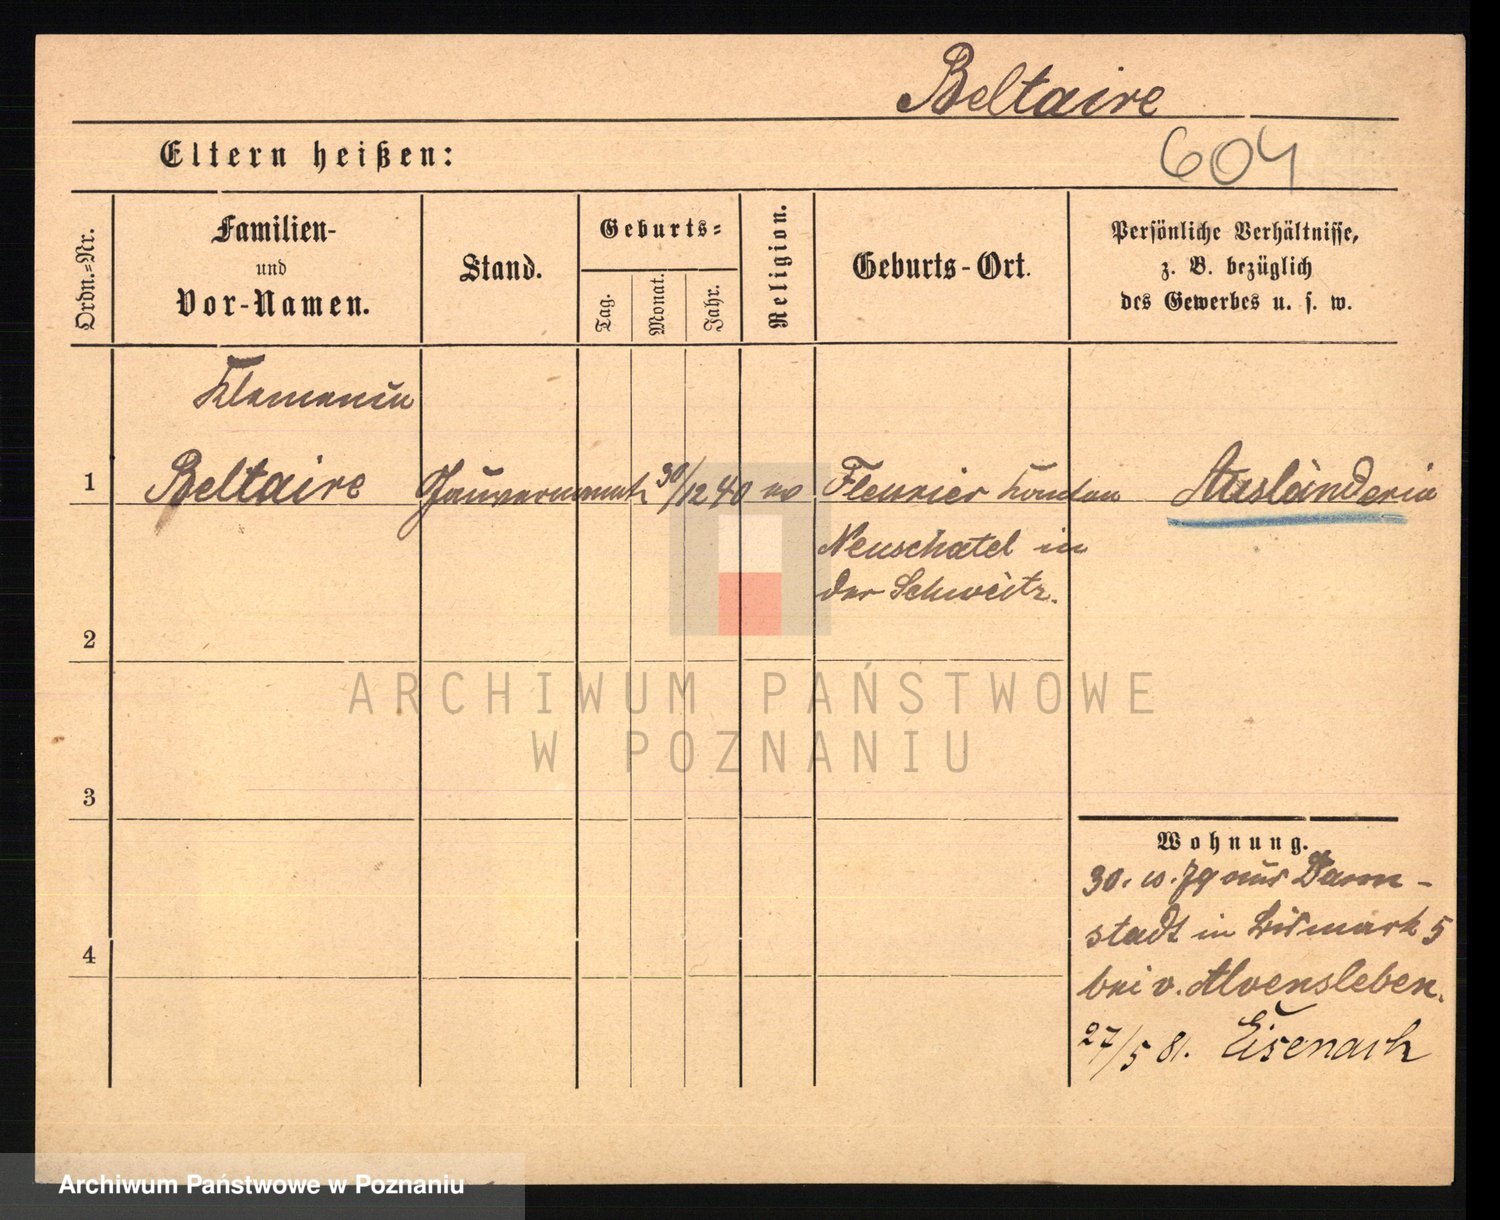 Beltaire
604
Eltern heißen:
Ordn.=Nr.
Familien-
und
Vor-Namen.
Stand.
Geburts=
Tag.
Monat.
Jahr.
Religion.
Geburts-Ort.
Persönliche Verhältnisse,
z. B. bezüglich
des Gewerbes u. s. w.
1
Beltaire
30/12 40
Fleurier Kanton
Neuschatel in
der Schweitz.
Ausländerin
2
3
4
Wohnung.
30. 10. 79 aus Darm-
stadt in Bismark 5
bei v. Alvensleben.
27/5 81. Eisenach
ARCHIWUM PAŃSTWOWE
W POZNANIU
Archiwum Państwowe w Poznaniu